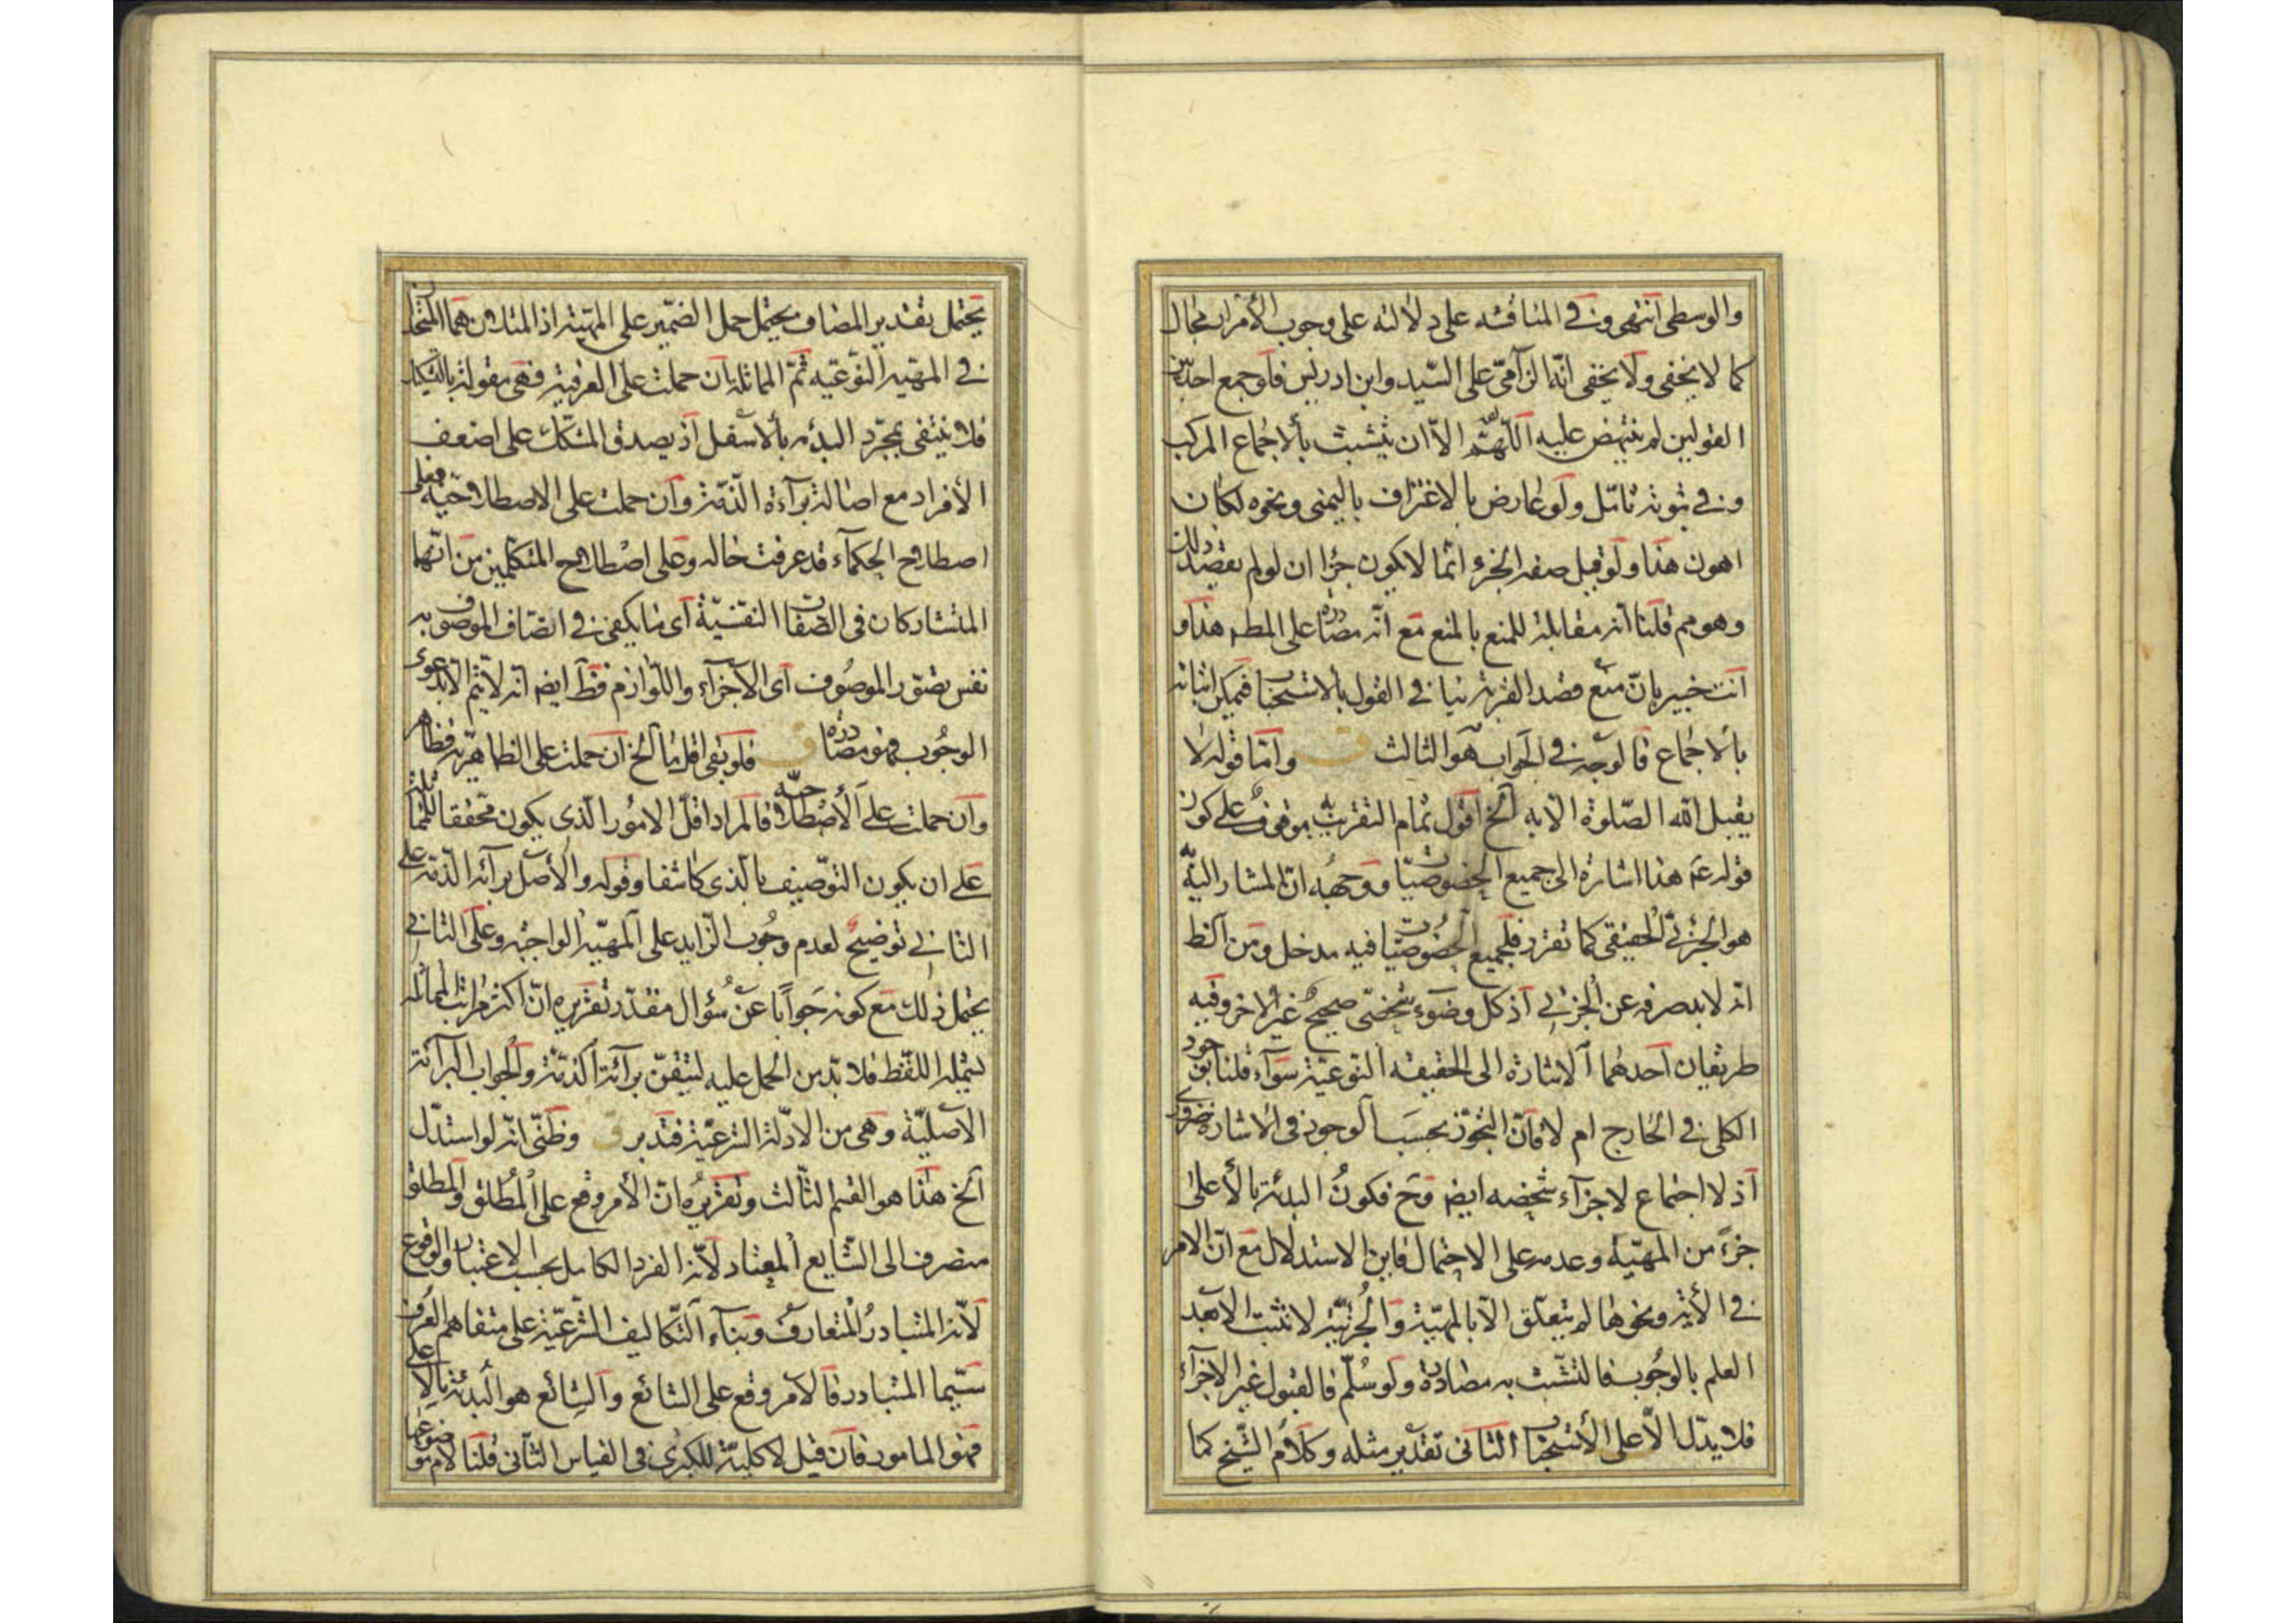 والوسطى انتهى وفي المناقشه على دلالته على وجوب الأمرار مجال
كما لا يخفى ولا يخفى انه الزامى على السيد وابن ادريس فلو جمع احد بين
القولين لم ينتهض عليه اللهم الا ان يتشبث بالاجماع المركب
وفي ثبوته تامل ولو عارض بالاغتراف باليمنى ونحوه لكان
اهون هذا ولو قيل صفة الجزء انما لا يكون جزا ان لو لم يقصد ذلك
وهو مم قلنا انه مقابلة للمنع بالمنع مع انه مصادرة على المطه هذا و
انت خبير بان منع قصد القربة ينافي القول بالاستحباب فيمكن اثباته
بالاجماع فالوجه في الجواب هو الثالث ق واما قوله لا
يقبل الله الصلوة الا به الخ اقول تمام التقريب موقوف على كون
قوله عم هذا اشارة الى جميع الخصوصيات ووجهه ان المشار اليه
هو الجزئي الحقيقى كما تقرر فلجميع الخصوصيات فيه مدخل ومن الظ
انه لا بد صرفه عن الجزئي اذ كل وضوء شخصى صحيح غير الاخر وفيه
طريقان احدهما الاشارة الى الحقيقة النوعية سواء قلنا بوجود
الكلى في الخارج ام لا فان التجوز بحسب الوجود فى الاشارة ضرورى
اذ لا اجتماع لاجزاء شخصه ايضه وح فكون البدئة بالأعلى
جزء من المهية وعدمه على الاحتمال فاين الاستدلال مع ان الامر
في الأية ونحوها لم يتعلق الا بالمهية والجزئية لا تثبت الا بعد
العلم بالوجوب فالتشبث به مصادرة ولو سلم فالقبول غير الاجزاء
فلا يدل الا على الأستحباب الثانى تقدير مثله وكلام الشيخ كما
يحتمل بقتدير المضاف يحتمل حمل الضمير على المهية اذ المثلان هما المتحدان
في المهية النوعيه ثم المماثلة بان حملت على العرفية فهى مقولة بالتشكيك
فلا ينتفى بمجرد البدئه بالاسفل اذ يصدق المشكك على اضعف
الأفراد مع اصالة براءة الذمة وان حملت على الاصطلاحية فعلى
اصطلاح الحكماء قد عرفت حاله وعلى اصطلاح المتكلمين من انها
المتشاركان فى الصفات النفسية اى ما يكفى في اتصاف الموصوف به
نفس تصور الموصوف اى الاجزاء واللوازم فظ ايضه انه لا يتم الا بدعوى
الوجوب فهو مصادرة ق فلو بقى اقل ما الخ ان حملت على الظاهرية فظاهر
وان حملت على الأصطلاحية فالمراد اقل الامور الذى يكون محققا للمماثلة
على ان يكون التوصيف بالذى كاشفا وقوله والأصل برائة الذمة على
الثاني توضيح لعدم وجوب الزايد على المهية الواجبة وعلى الثاني
يحتمل ذلك مع كونه جوابا عن سؤال مقدر تقريره ان اكثر مراتب المماثلة
يشمله اللفظ فلا بد من الحمل عليه ليتيقن برائة الذمة والجواب البرائة
الاصلية وهى من الادلة الشرعية فتدبر ق وظنى انه لو استدل
الخ هذا هو القسم الثالث وتقريره ان الأمر وقع على المطلق والمطلق
منصرف الى الشايع المعتاد لأنه الفرد الكامل بحسب الاعتبار والوقوع
لأنه المتبادر المتعارف وبناء التكاليف الشرعية على متفاهم العرف
سيما المتبادر فالامر وقع على الشائع والشائع هو البدئة بالاعلى
فهو المامور فان قيل لا كلية للكبرى فى القياس الثانى قلنا لام موضوعها